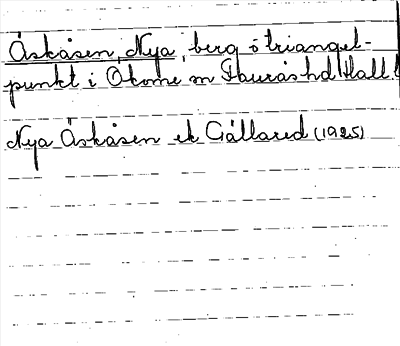 Åskåsen, Nya, berg o triangel-
punkt i Okome sn Faurås hd Hall.
Nya Åskåsen ek Gällared (1925)